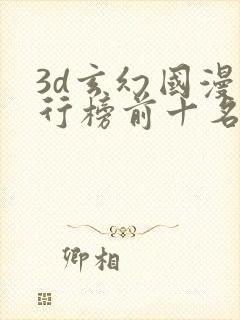 3d玄幻國漫
行榜前十名
卿相